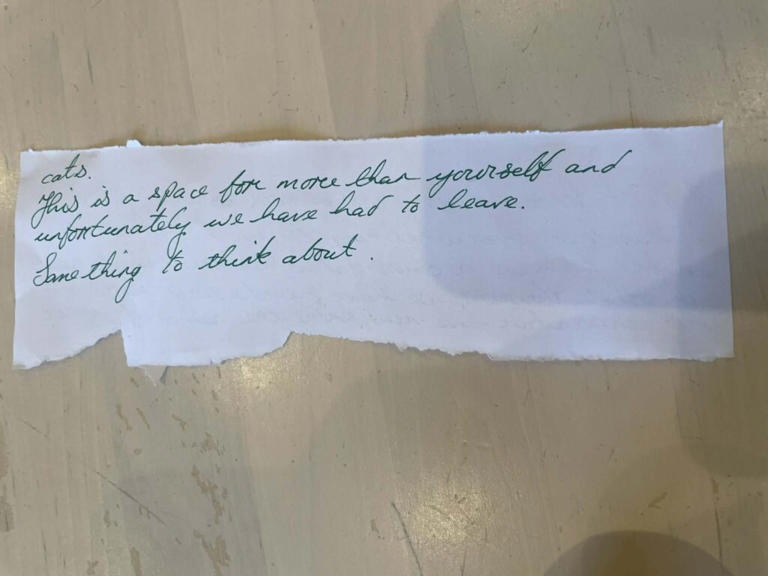 cats.
This is a space for more than yourself and
unfortunately we have had to leave.
Something to think about.